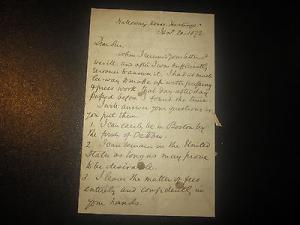 Halloway House, Hastings.
Sept. 20. 1872
Dear Sir,
When I received your letter I
was ill, and after I was sufficiently
recovered to answer it, I had so much
leeway to make up with pressing
press work that day after day
passed before I found the time.
I will answer your questions as
you put them.
1. I can easily be in Boston by
the first of October.
2. I can remain in the United
States as long as may prove
to be desirable.
3. I leave the matter of fees
entirely and confidently in
your hands.